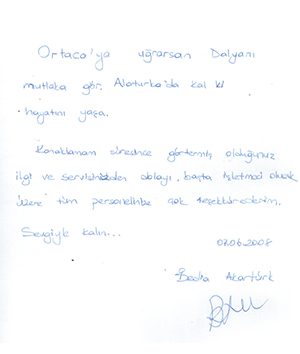 Ortaca'ya uğrarsan Dalyanı
mutlaka gör, Alaturka'da kal ki
hayatını yaşa.
Konaklamam süresince göstermiş olduğunuz
ilgi ve servisinizden dolayı, başta işletmeci olmak
üzere tüm personelinize çok teşekkür ederim.
Sevgiyle kalın...
07.06.2008
Bedia Akartürk